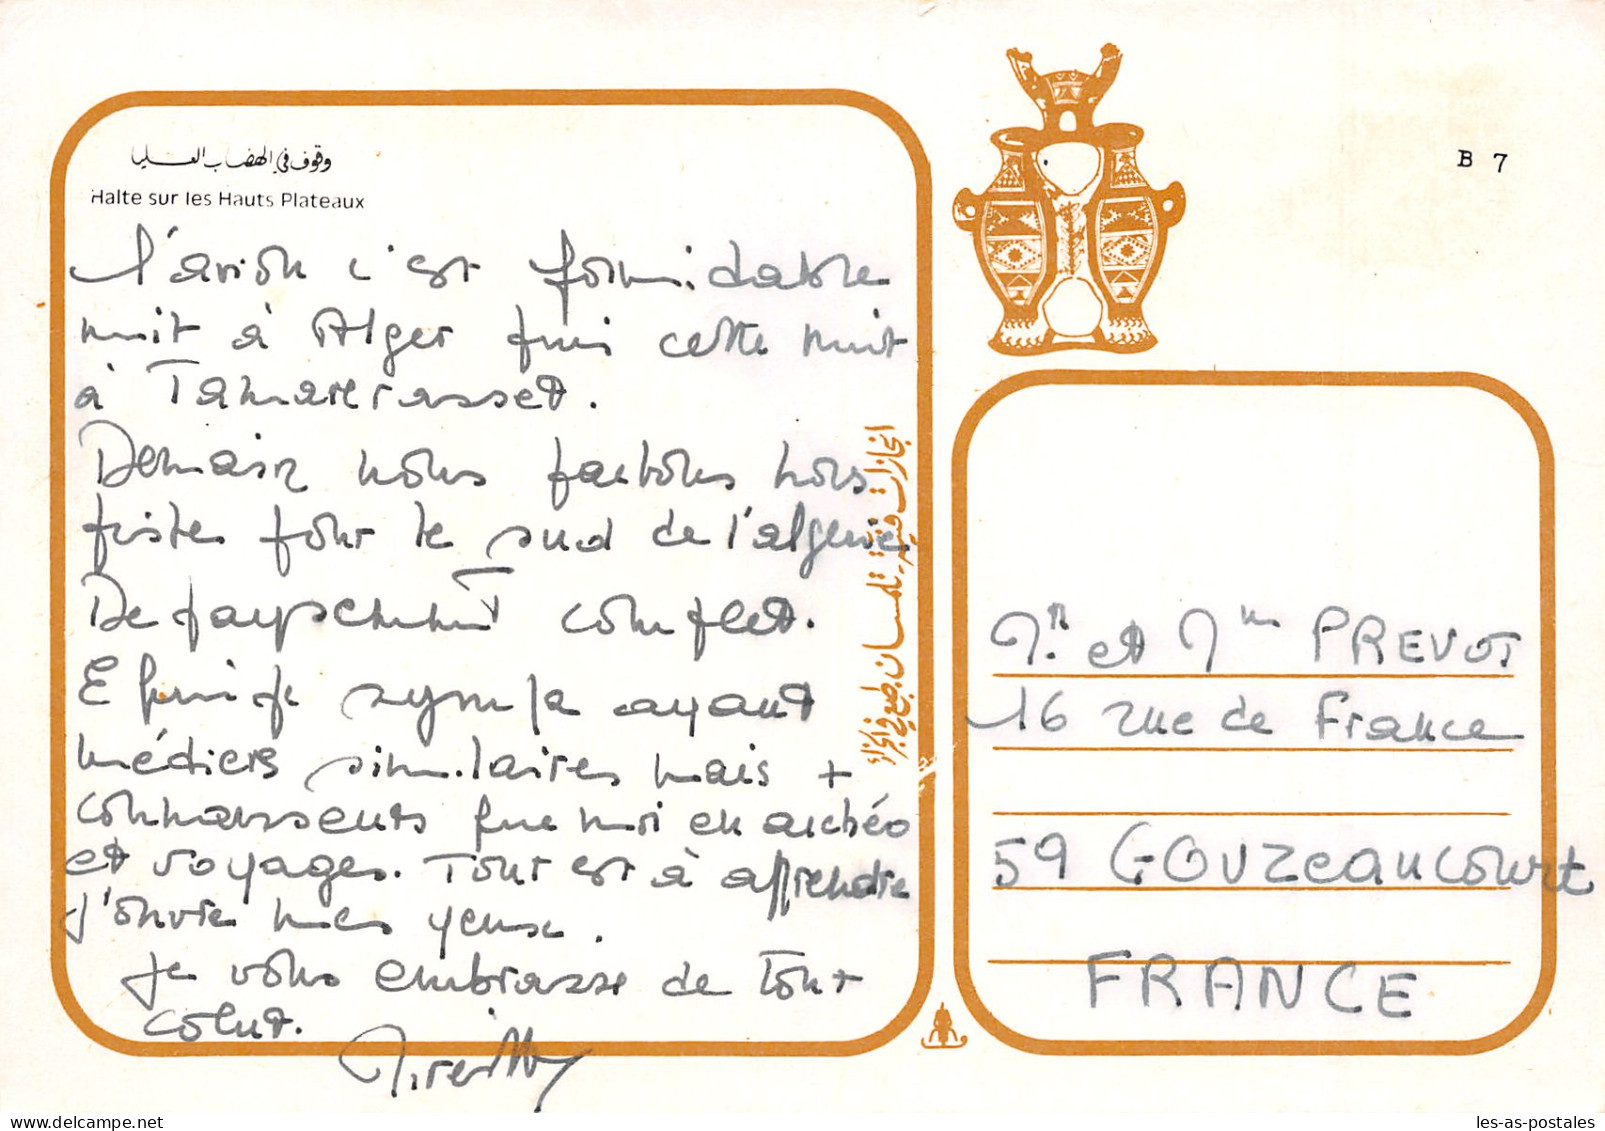 وقوف في الهضاب العليا
Halte sur les Hauts Plateaux
B 7
l'avion c'est formidable
nuit à Alger puis cette nuit
à Tamanrasset.
Demain nous partons hors
piste pour le sud de l'algerie.
Depaysement complet.
Equipe sympa ayant
médiers similaires mais +
connaissents que moi en archéo
et voyages. Tout est à apprendre
J'ouvre mes yeux.
Je vous embrasse de tout
coeur.
Mireille
انجازات فنية - تلمسان، طبع في الجزائر
Mr. et Mme PREVOT
16 rue de France
59 GOUZeaucourt
FRANCE
les-as-postales